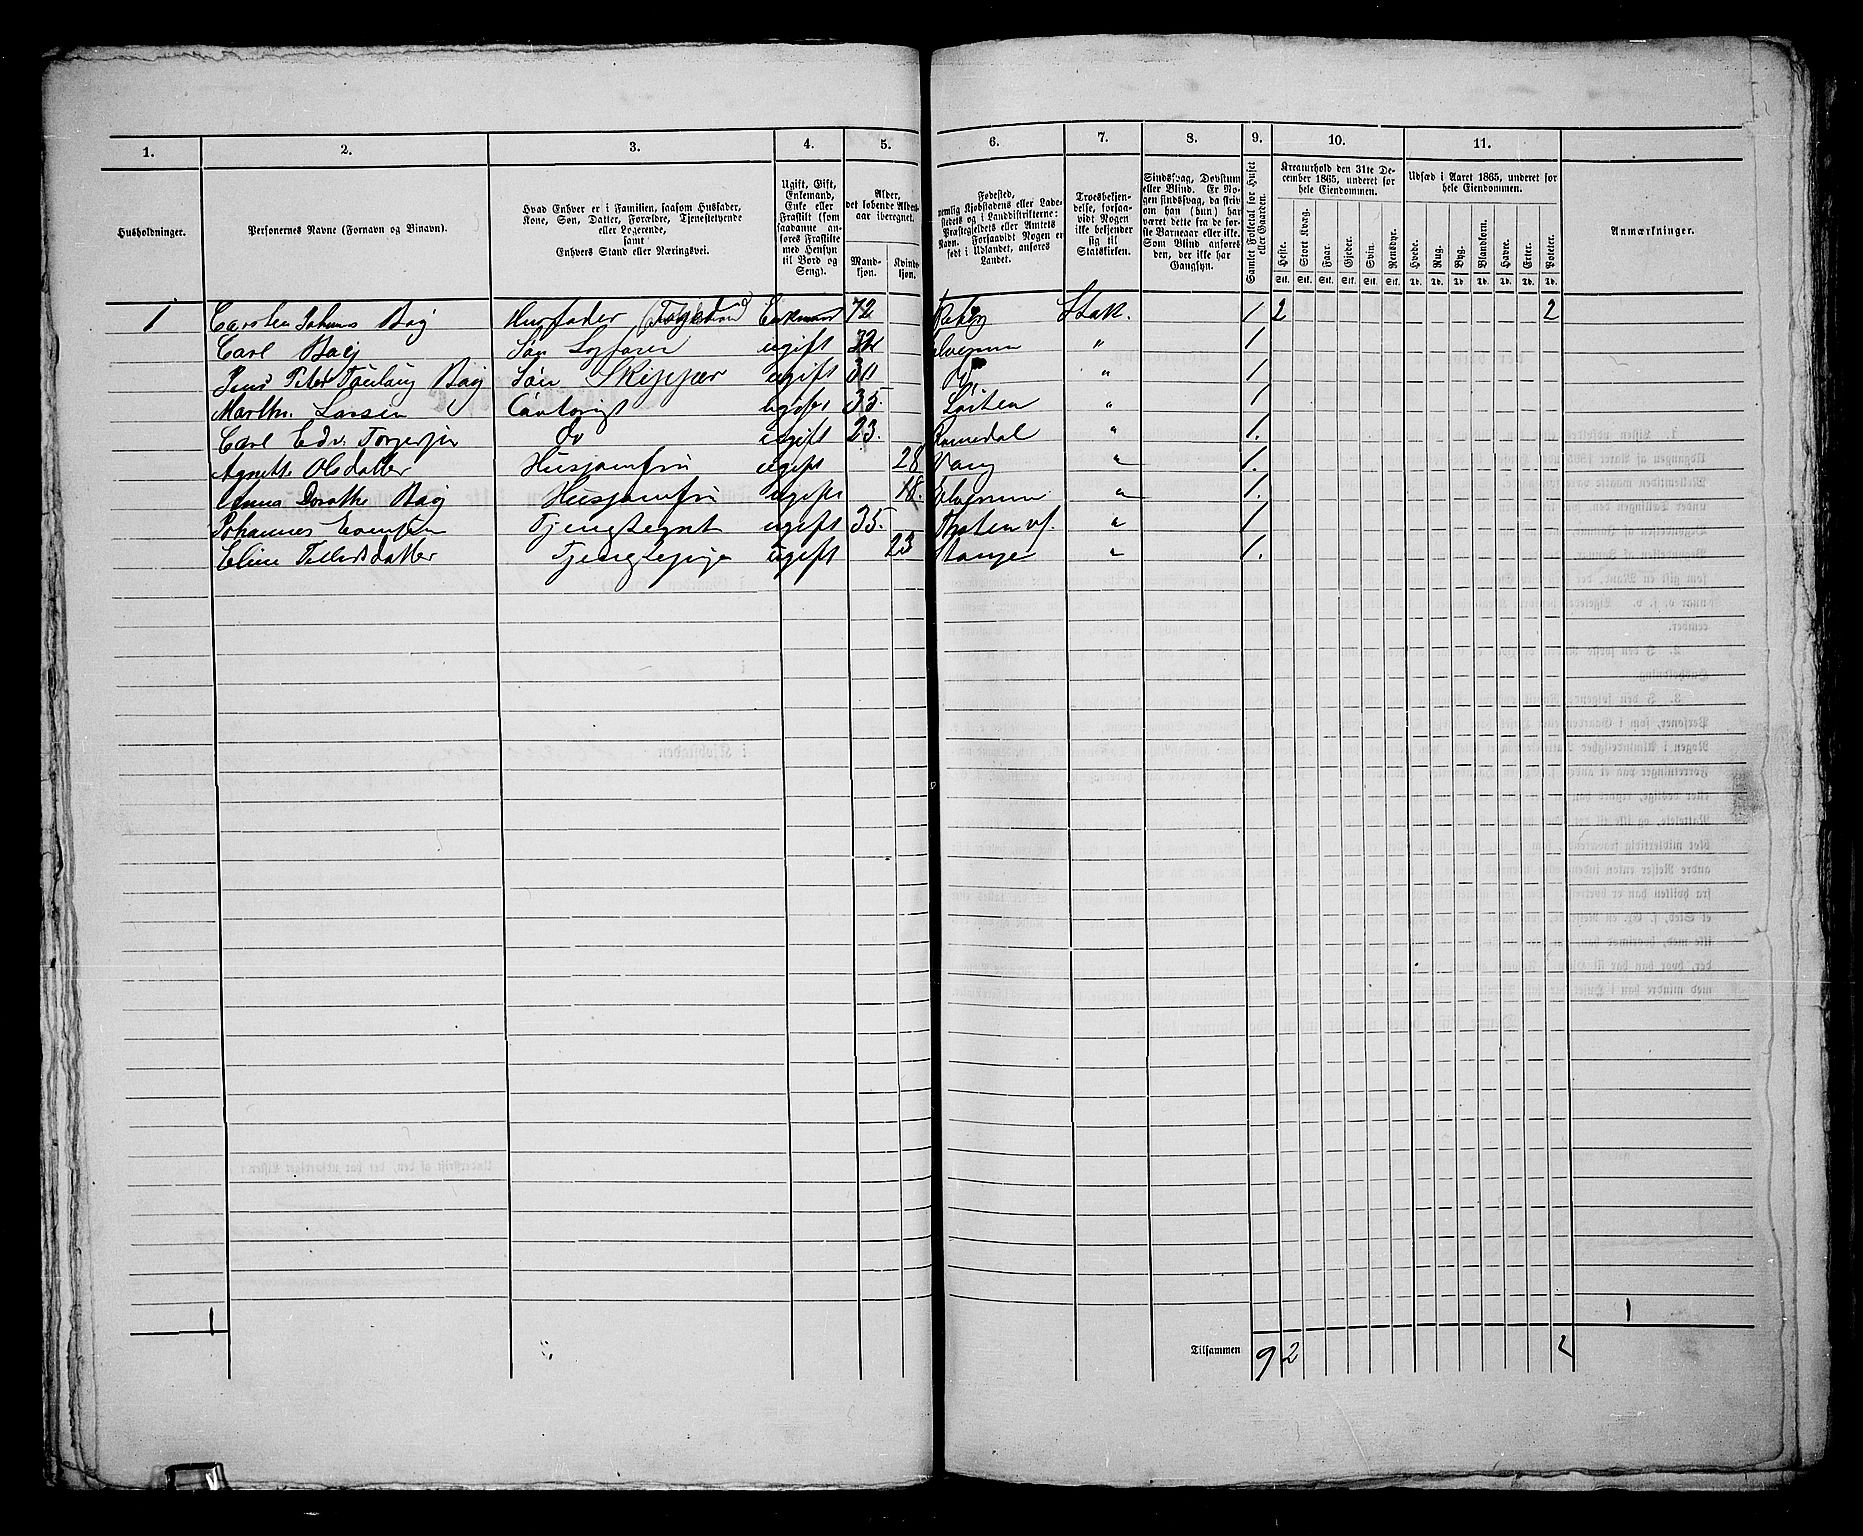 1. 2. 3. 4. 5. 6. 7. 8. 9. 10. 11.
Husholdninger.
Personernes Navne (Fornavn og Binavn).
Hvad Enhver er i Familien, saasom Husfader,
Kone, Søn, Datter, Forældre, Tjenestetyende
eller Logerende,
samt
Enhvers Stand eller Næringsvei.
Ugift, Gift,
Enkemand,
Enke eller
Fraskilt (som
saadanne an-
føres Fraskilte
med Hensyn
til Bord og
Seng).
Alder,
det løbende Alders-
aar iberegnet.
Mand-
kjøn.
Kvinde-
kjøn.
Fødested,
nemlig Kjøbstadens eller Lade-
stedets og i Landdistrikterne:
Præstegjeldets eller Amtets
Navn. Forsaavidt Nogen er
født i Udlandet, anføres
Landet.
Troesbekjen-
delse, forsaa-
vidt Nogen
ikke bekjender
sig til
Statskirken.
Sindssvag, Døvstum
eller Blind. Er No-
gen sindssvag, da skriv
om han (hun) har
været dette fra de før-
ste Barneaar eller ikke.
Som Blind anføres
den, der ikke har
Gangsyn.
Samlet Folketal for Huset
eller Gaarden.
Kreaturhold den 31te De-
cember 1865, underet for
hele Eiendommen.
Heste. Stort Kvæg. Faar. Gjeder. Svin. Rensdyr.
Stk. Stk. Stk. Stk. Stk. Stk.
Udsæd i Aaret 1865, underet for
hele Eiendommen.
Hvede. Rug. Byg. Blandkorn. Havre. Erter. Poteter.
Td. Td. Td. Td. Td. Td. Td.
Anmærkninger.
1 Carsten Johans Bay Husfader 72 Stsk. 1 2 2
Carl Bay Søn ugift 32 Elverum " 1
Jens Peter Bay Søn Skipper ugift 31 " 1
Marthin Larsen ugift 35. Løiten " 1
Carl Edv. Torgersen Do ugift 23. Romedal " 1.
Agnette Olsdatter Husjomfru ugift 28 Vang " 1.
Anna Dorothe Bay Husjomfru ugift 18. Elverum " 1.
Johannes Evensen Tjenstegut ugift 35. " 1
Eline Datter Tjenstepige ugift 23 Stange " 1.
1 1
Tilsammen 9 2 2